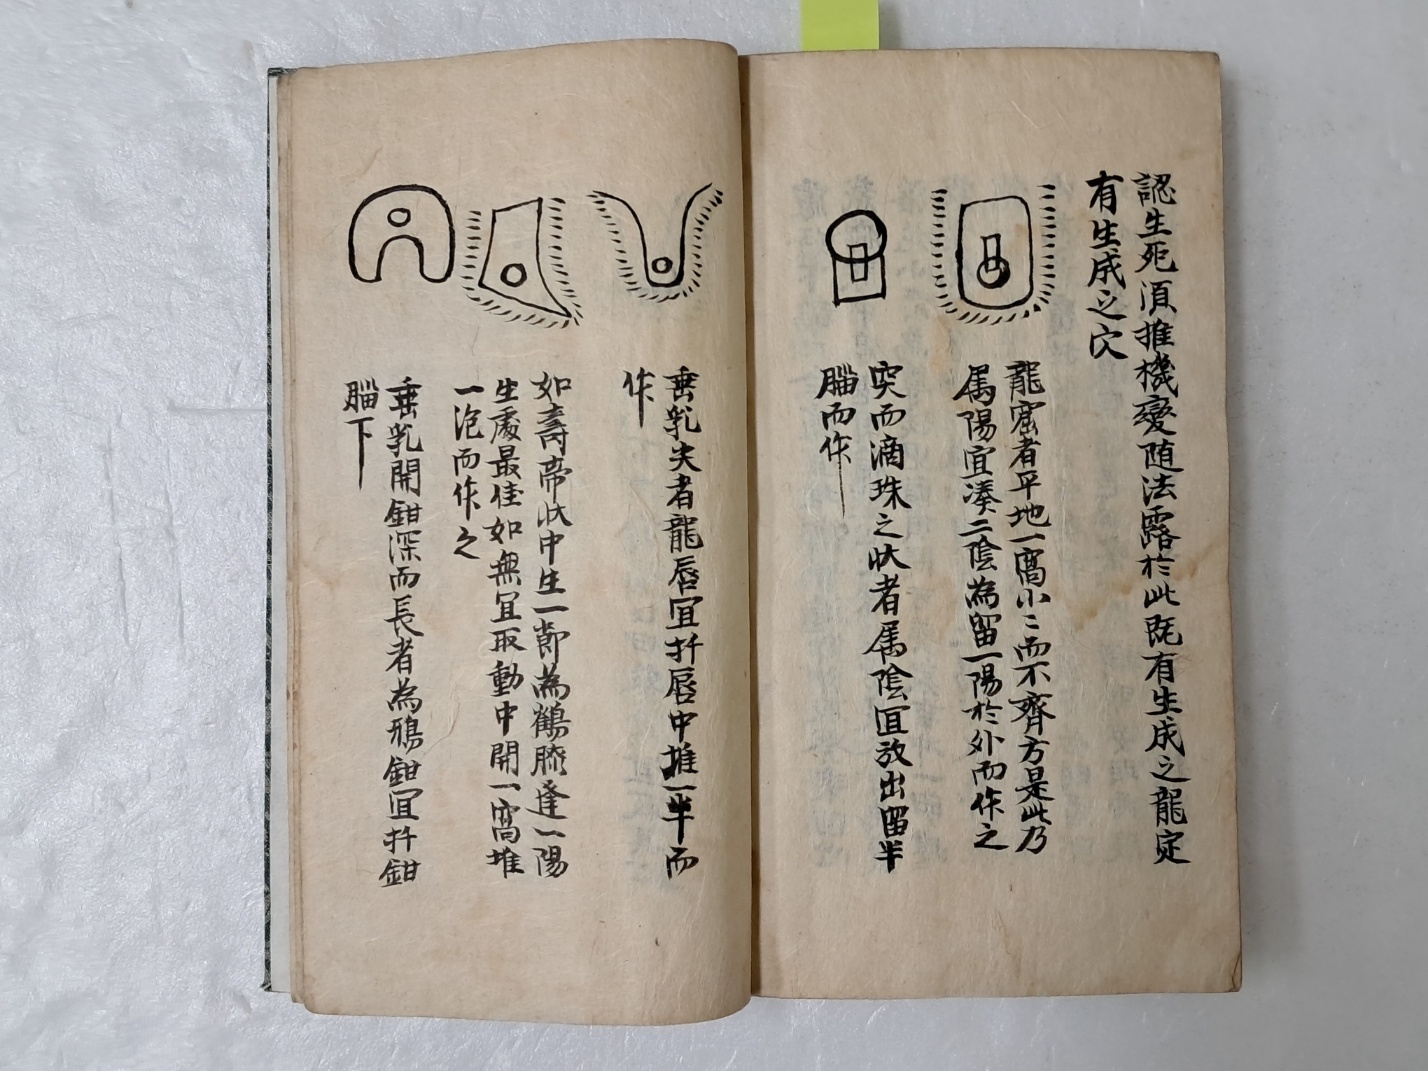 認生死須推機變随法露於此既有生成之龍定
有生成之穴
龍窟者平地一窩小〻而不齊方是此乃
属陽宜凑二陰為留一陽於外而作之
突而滴珠之状者属陰宜放出留半
腦而作
垂乳夫者龍唇宜扦唇中堆一半而
作
如壽帶状中生一節為鶴膝逢一陽
生處最佳如無宜取動中開一窩堆
一泡而作之
垂乳開鉗深而長者為鴉鉗宜扦鉗
腦下